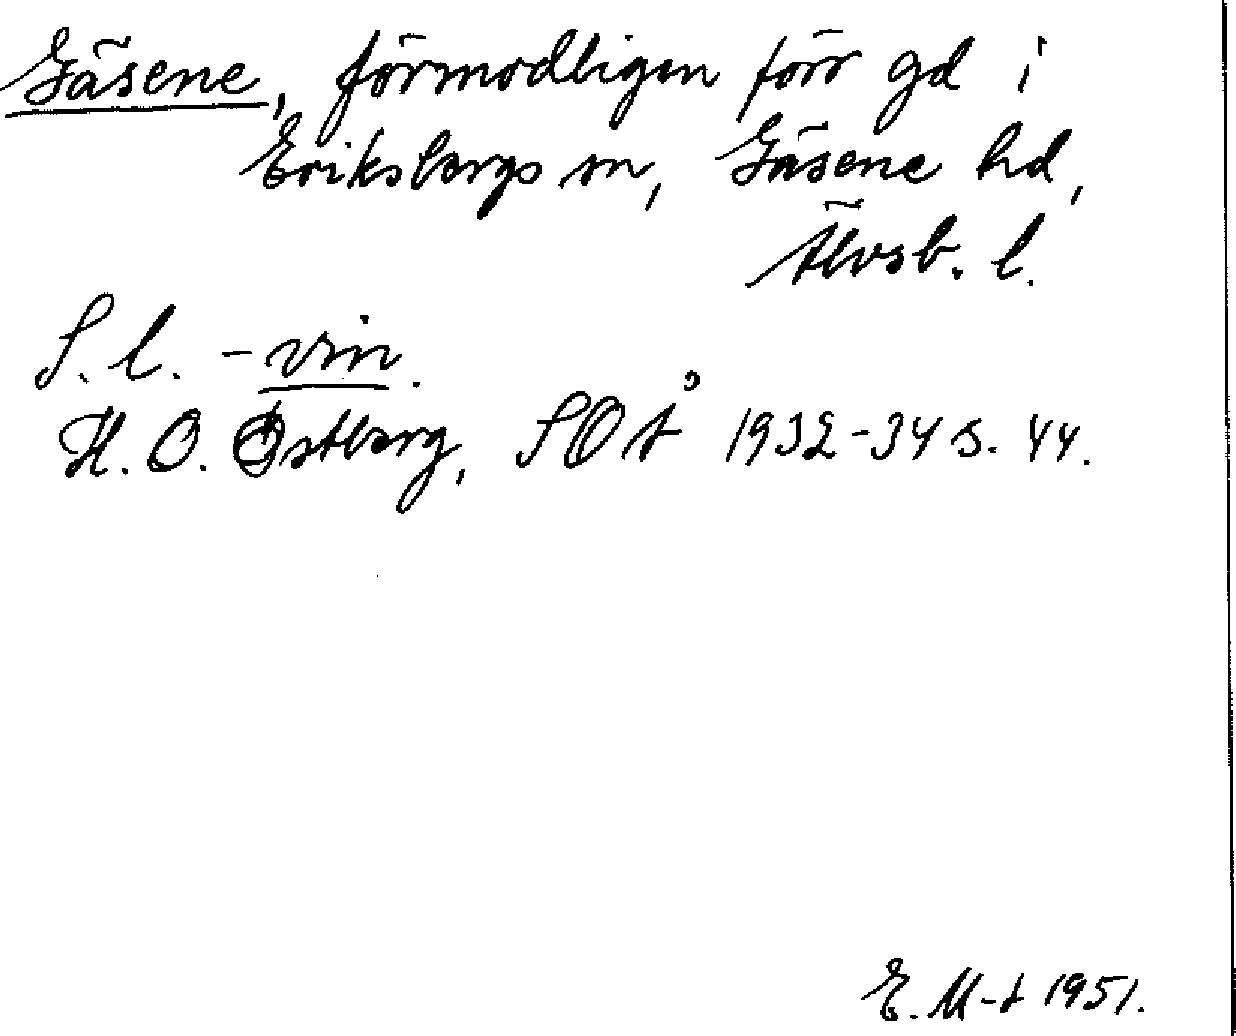 Gäsene, förmodligen förr gd i
Eriksbergs sn, Gäsene hd,
Älvsb. l.
S.l. -vin.
H. O. Östberg, SOÅ 1932-34 s. 44.
E. M-t 1951.